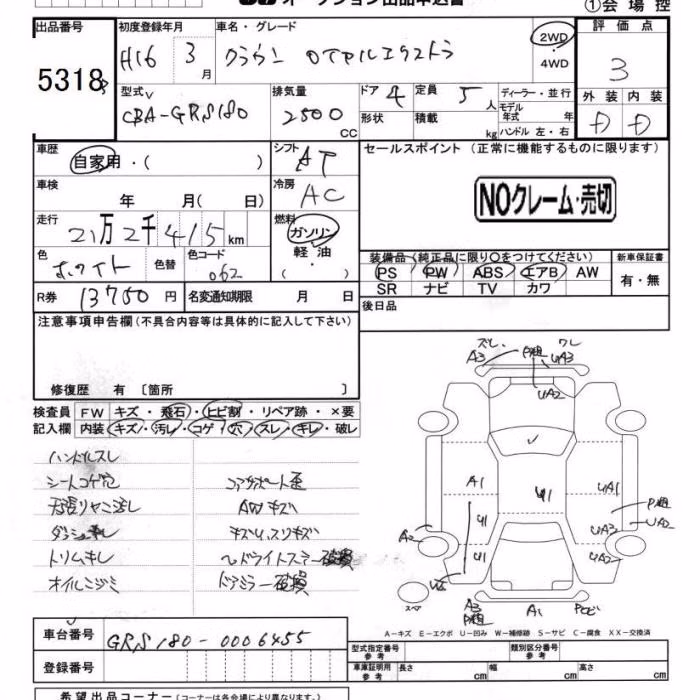 オークション出品申込書
①会場控
出品番号
5318
初度登録年月
H16 3月
車名・グレード
クラウン ロイヤルエクストラ
2WD
・
4WD
評価点
3
型式
CBA-GRS180
排気量
2500 CC
ドア 4
定員 5人
形状
積載 kg
ディーラー・並行
モデル年式 年式
ハンドル 左・右
外装 内装
D D
車歴
自家用・( )
シフト
AT
セールスポイント (正常に機能するものに限ります)
車検
年 月( 日)
冷房
AC
NOクレーム・売切
走行
21万2千415km
燃料
ガソリン
・
軽油
色
ホワイト
色替
色コード
062
装備品(純正品に限り○をつけてください)
新車保証書
PS PW ABS エアB AW
SR ナビ TV カワ
有・無
R券 13750円
名変通知期限 月 日
後日品
注意事項申告欄(不具合内容等は具体的に記入して下さい)
修復歴 有 〔箇所 〕
検査員記入欄
FW キズ・飛石・ヒビ割・リペア跡・×要
内装 キズ・汚レ・コゲ・穴・スレ・キレ・破レ
ハンドルスレ
シートコゲ穴
コアサポート歪
天張リヤニ汚レ
AWキズ
ダッシュ
トリムキレ
ヘッドライトステー破損
オイルニジミ
ドアミラー破損
ズレ ワレ
A3 P組 UA3
UA2
A1 U1 UA1
P組
UA2
A2 U1 UA3
U1 UA2
U2
スペア
A3 P組
A1
Pヒビ
A-キズ E-エクボ U-凹み W-補修跡 S-サビ C-腐食 XX-交換済
車台番号
GRS180-0006455
登録番号
型式指定番号 参考
類別区分番号 参考
車庫証明用 参考
長さ cm
幅 cm
高さ cm
希望出品コーナー(コーナーは各会場により異なります)